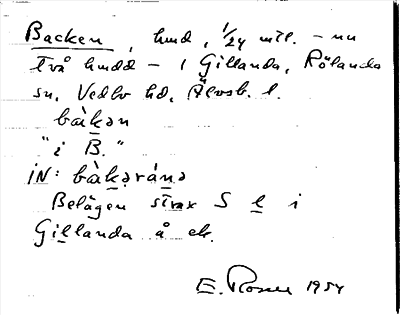 Backen, hmd, 1/24 mtl. – nu
två hmdd – i Gillanda, Rölanda
sn, Vedbo hd, Älvsb. l.
bàkən
"i B."
iN: bàkəránə
Belägen strax S l i
Gillanda å ek.
E. Rosen 1954